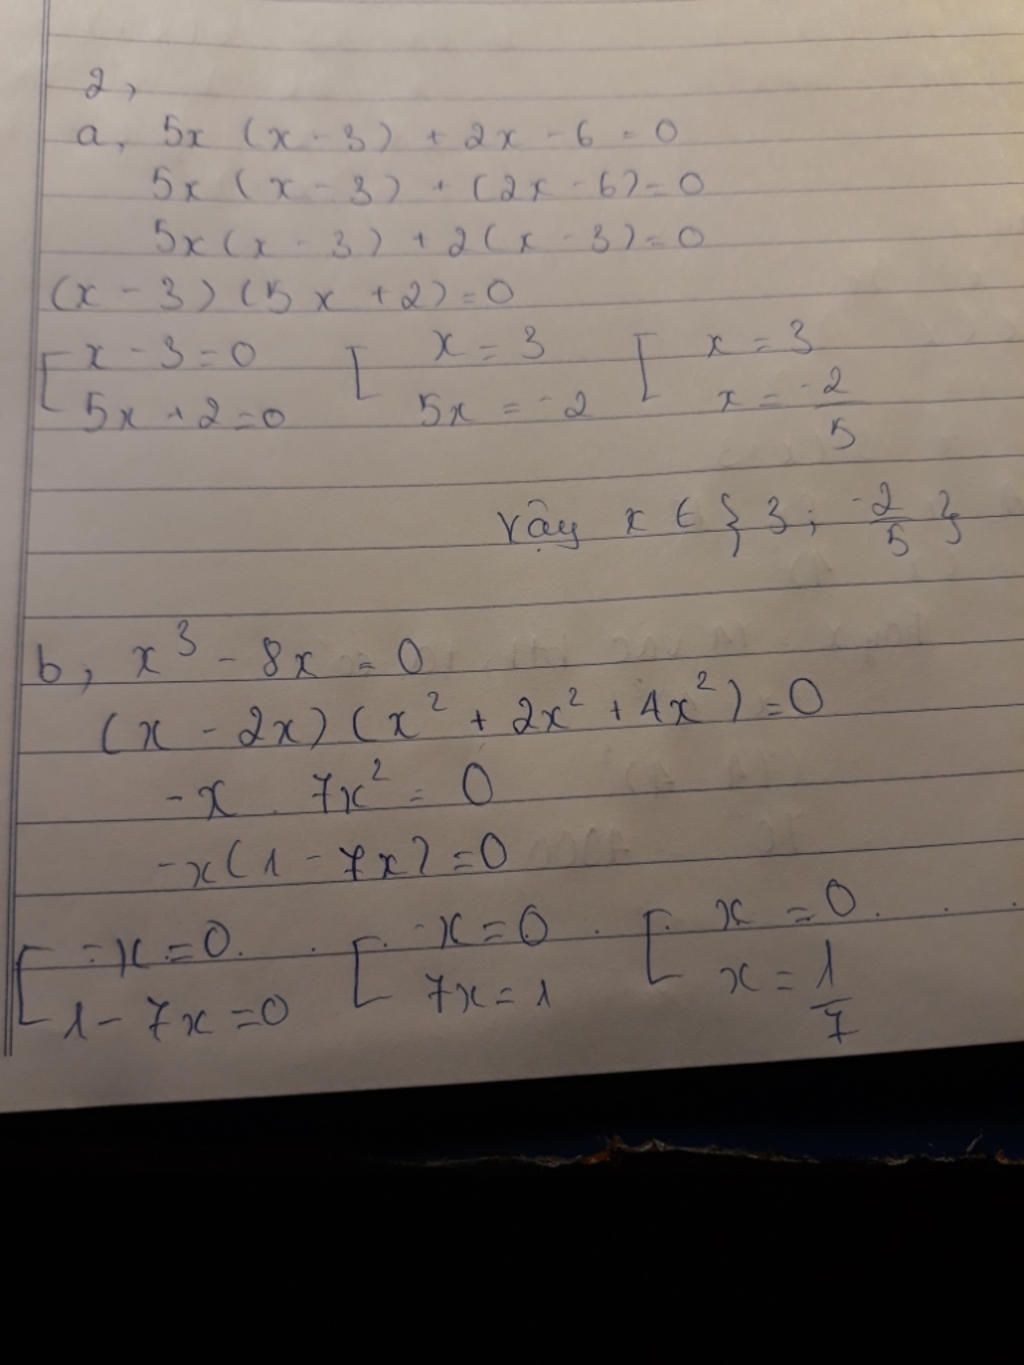 2,
a, 5x (x - 3) + 2x - 6 = 0
5x (x - 3) + (2x - 6) = 0
5x (x - 3) + 2 (x - 3) = 0
(x - 3) (5x + 2) = 0
[ x - 3 = 0 [ x = 3 [ x = 3
5x + 2 = 0 5x = -2 x = -2/5
Vậy x ∈ { 3 ; -2/5 }
b, x³ - 8x = 0
(x - 2x) (x² + 2x² + 4x²) = 0
-x . 7x² = 0
-x (1 - 7x) = 0
[ -x = 0 [ -x = 0 [ x = 0
1 - 7x = 0 7x = 1 x = 1/7